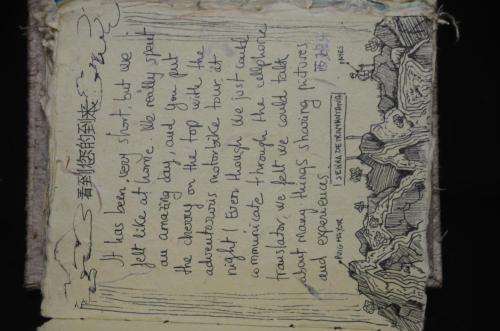 看到您的到来
It has been very short but we
felt like at home. We really spent
an amazing day, and you put
the cherry on the top with the
adventurous motorbike tour at
night! Even though we just could
communicate through the cellphone
translator, we felt we could talk
about many things sharing pictures
and experiences.
SERRA DE TRAMUNTANA
PUIG MAJOR